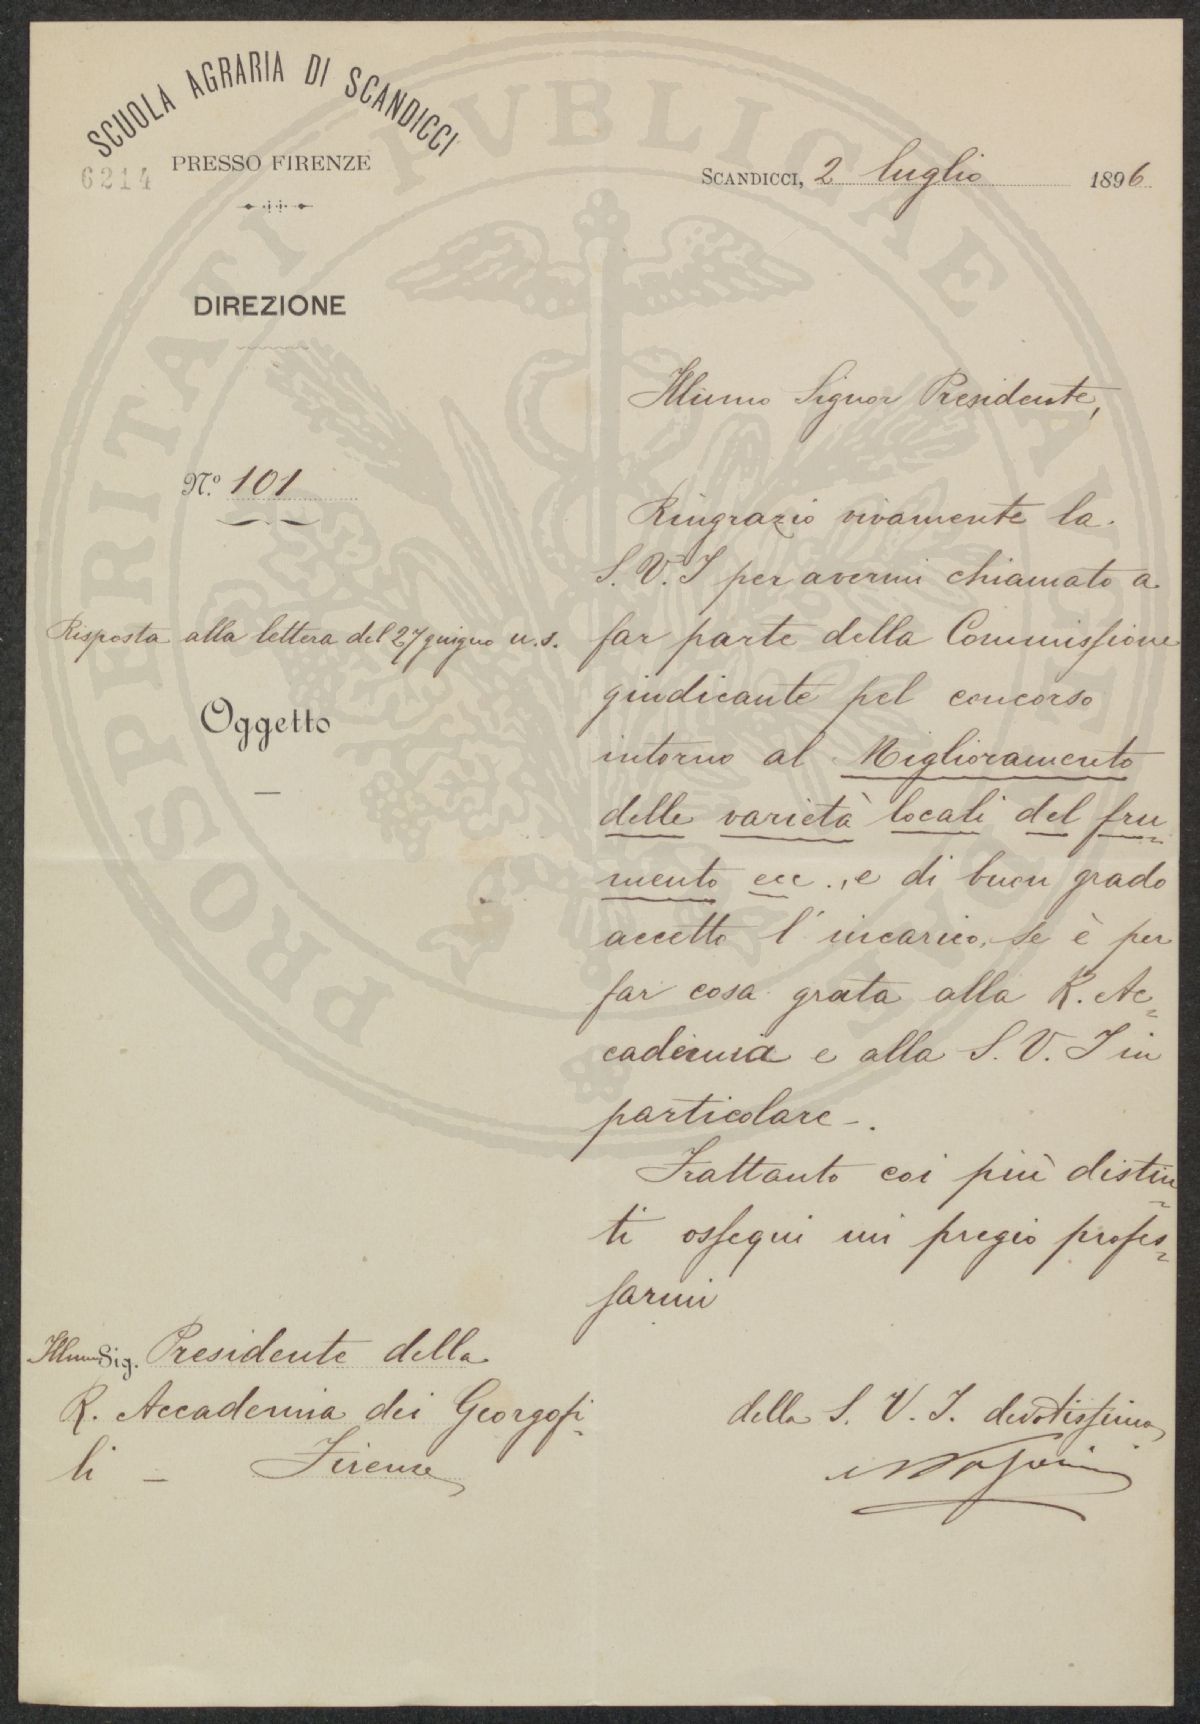 SCUOLA AGRARIA DI SCANDICCI
PRESSO FIRENZE
6214
SCANDICCI, 2 luglio 1896
DIREZIONE
N.º 101
Risposta alla lettera del 27 giugno u.s.
Oggetto
Illumo Signor Presidente,
Ringrazio vivamente la
S. V. I per avermi chiamato a
far parte della Commissione
giudicante pel concorso
intorno al Miglioramento
delle varietà locali del fru-
mento ecc., e di buon grado
accetto l'incarico, se è per
far cosa grata alla R. Ac-
cademia e alla S. V. I in
particolare -.
Frattanto coi più distin-
ti ossequi mi pregio profes-
sarmi
della S. V. I. devotissimo
Illmo Sig. Presidente della
R. Accademia dei Georgofi-
li - Firenze
PROSPERITATI PVBLICAE AVGENDAE